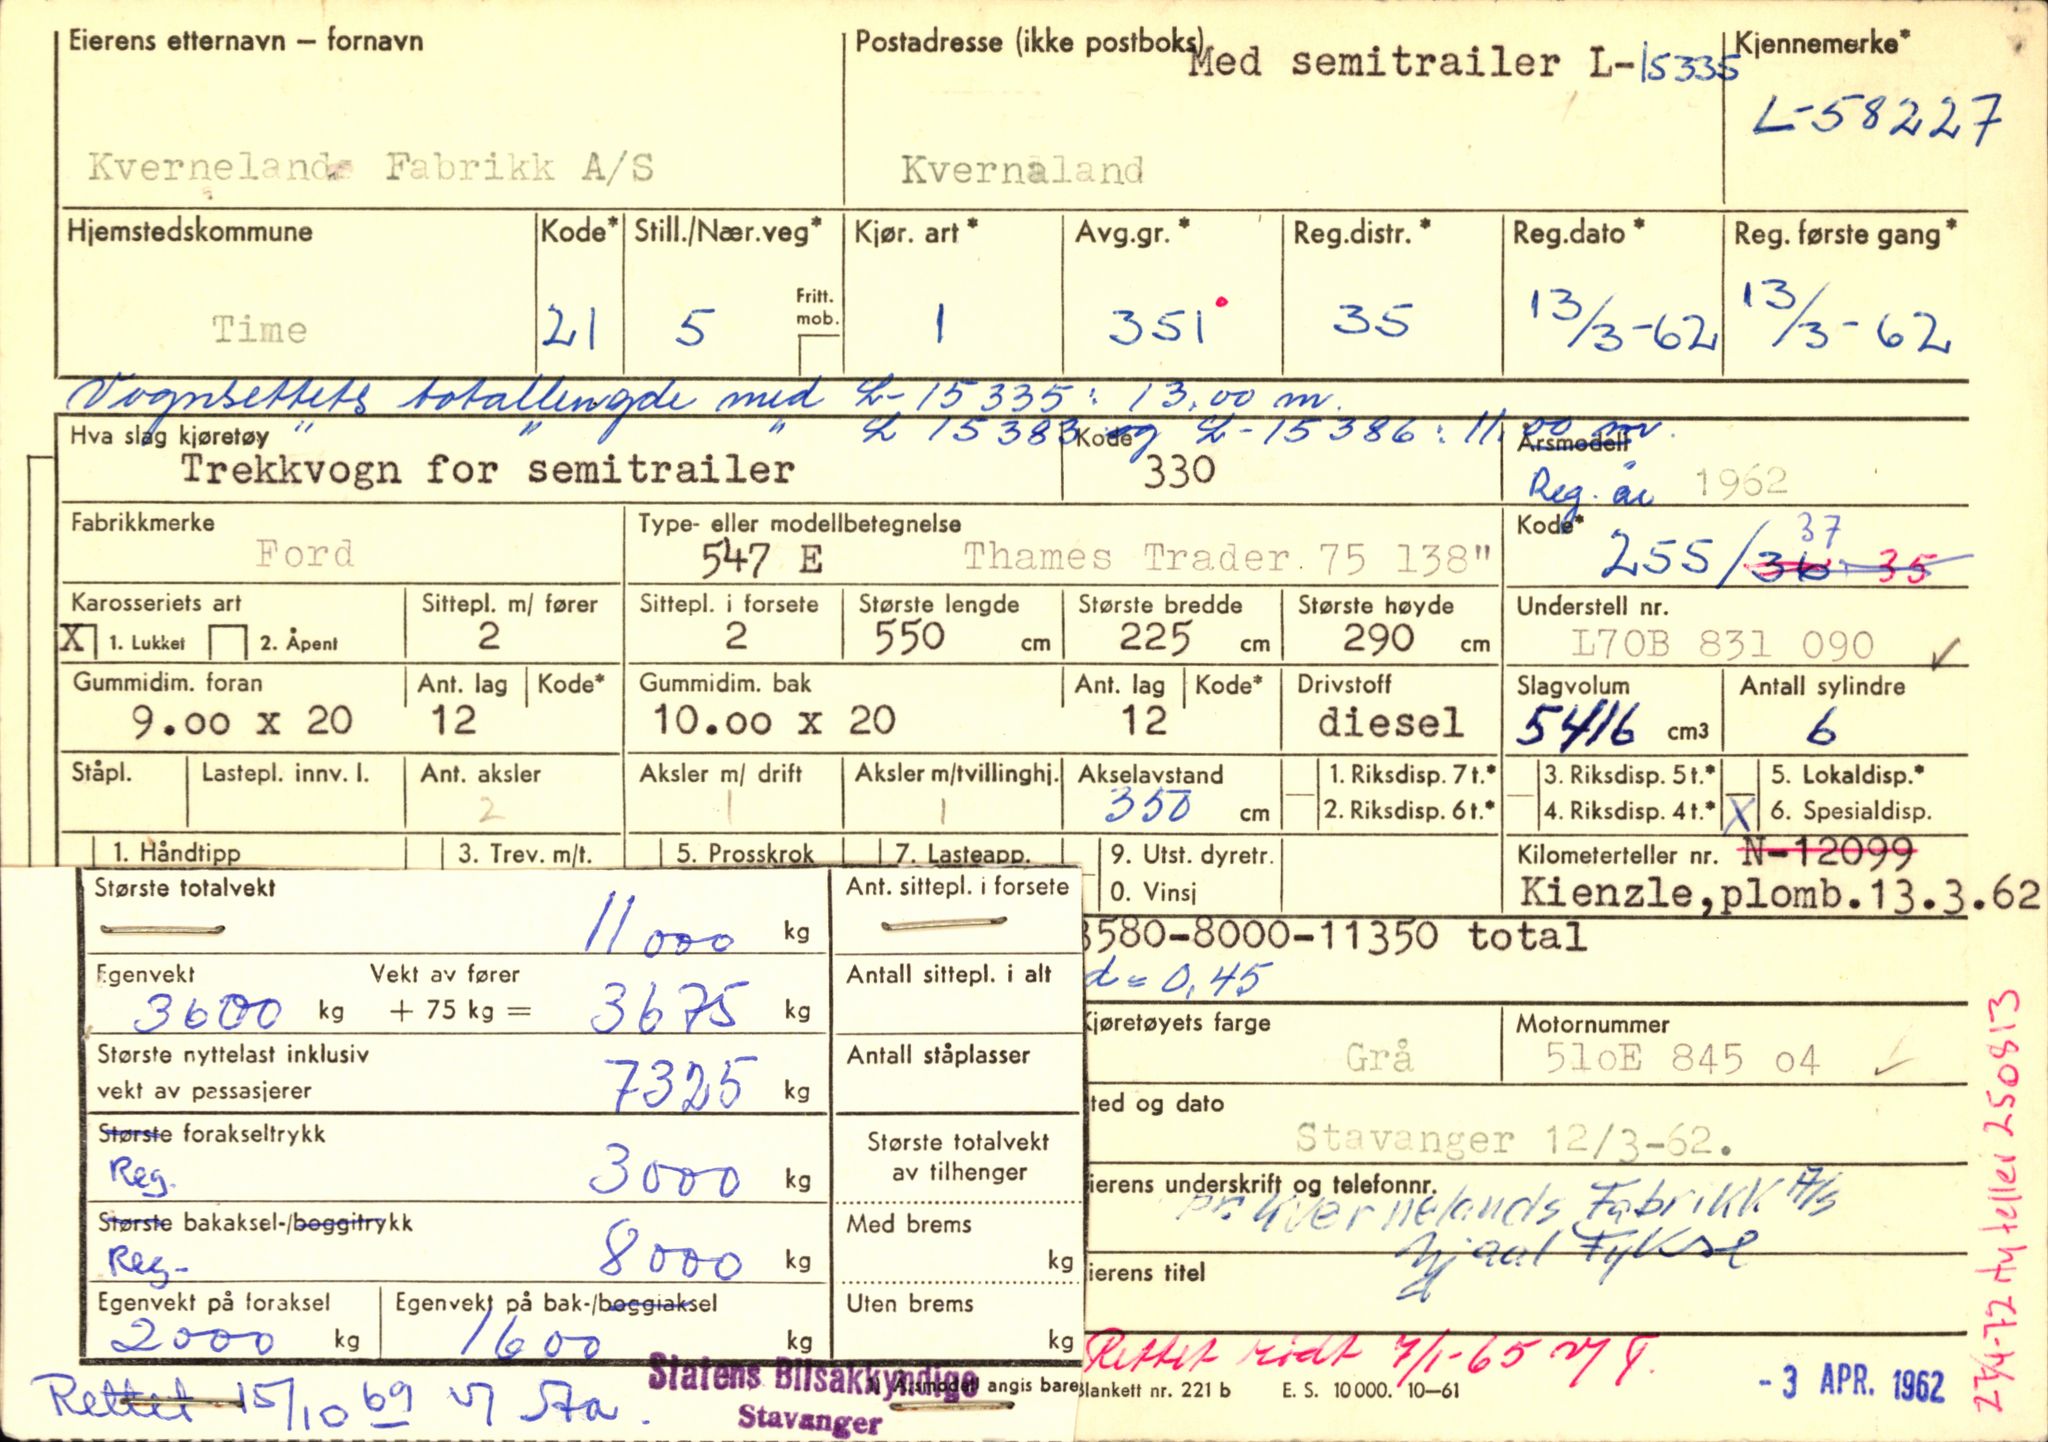 Eierens etternavn – fornavn
Postadresse (ikke postboks)
Med semitrailer L-15335
Kjennemerke*
L-58227
Kvernelands Fabrikk A/S
Kvernaland
Hjemstedskommune
Kode*
Still./Nær.veg*
Kjør. art*
Avg.gr.*
Reg.distr.*
Reg.dato*
Reg. første gang*
Time
21
5
Fritt. mob.
1
351
35
13/3-62
13/3-62
Vognsettets totallengde med L-15335: 13,00 m.
" " " L 15383 og L-15386: 11,00 m.
Hva slag kjøretøy
Trekkvogn for semitrailer
Kode
330
Årsmodell
Reg. år 1962
Fabrikkmerke
Ford
Type- eller modellbetegnelse
547 E Thames Trader 75 138"
Kode*
255/36 35
37
Karosseriets art
X 1. Lukket 2. Åpent
Sittepl. m/ fører
2
Sittepl. i forsete
2
Største lengde
550 cm
Største bredde
225 cm
Største høyde
290 cm
Understell nr.
L70B 831 090
Gummidim. foran
9.00 x 20
Ant. lag
12
Kode*
Gummidim. bak
10.00 x 20
Ant. lag
12
Kode*
Drivstoff
diesel
Slagvolum
5416 cm3
Antall sylindre
6
Ståpl.
Lastepl. innv. l.
Ant. aksler
2
Aksler m/ drift
1
Aksler m/tvillinghj.
1
Akselavstand
350 cm
1. Riksdisp. 7 t.*
2. Riksdisp. 6 t.*
3. Riksdisp. 5 t.*
4. Riksdisp. 4 t.*
5. Lokaldisp.*
X 6. Spesialdisp.
1. Håndtipp
3. Trev. m/t.
5. Prosskrok
7. Lasteapp.
9. Utst. dyretr.
0. Vinsj
Kilometerteller nr. N-12099
Kienzle, plomb.13.3.62
3580-8000-11350 total
d = 0,45
Største totalvekt
11000 kg
Ant. sittepl. i forsete
Egenvekt
3600 kg
Vekt av fører
+ 75 kg = 3675 kg
Antall sittepl. i alt
Største nyttelast inklusiv
vekt av passasjerer
7325 kg
Antall ståplasser
Største forakseltrykk
Reg. 3000 kg
Største totalvekt
av tilhenger
Største bakaksel-/boggitrykk
Reg- 8000 kg
Med brems
kg
Egenvekt på foraksel
2000 kg
Egenvekt på bak-/boggiaksel
1600 kg
Uten brems
kg
Kjøretøyets farge
Grå
Motornummer
510E 845 04
ted og dato
Stavanger 12/3-62.
ierens underskrift og telefonnr.
pr. Kvernelands Fabrikk A/S
Fykse
ierens titel
Rettet rødt 7/1-65
Rettet 15/10 69
Statens Bilsakkyndige
Stavanger
Årsmodell angis bare
Blankett nr. 221 b E. S. 10 000. 10–61
- 3 APR. 1962
27/4-72 Ny teller 250813